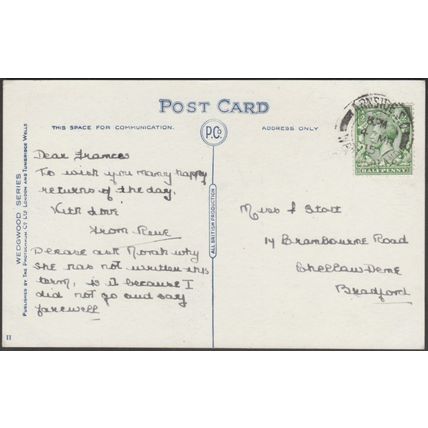 POST CARD
THIS SPACE FOR COMMUNICATION.
P.Co
ADDRESS ONLY
Dear Frances
To wish you many happy
returns of the day.
With love
from
Please ask Norah why
she has not written this
term, is it because I
did not go and say
farewell
Miss F Stott
14 Brambourne Road
Bradford
ARNSIDE
HALFPENNY
WEDGWOOD SERIES
PUBLISHED BY THE PHOTOCHROM CO LTD LONDON AND TUNBRIDGE WELLS
ALL BRITISH PRODUCTION
11